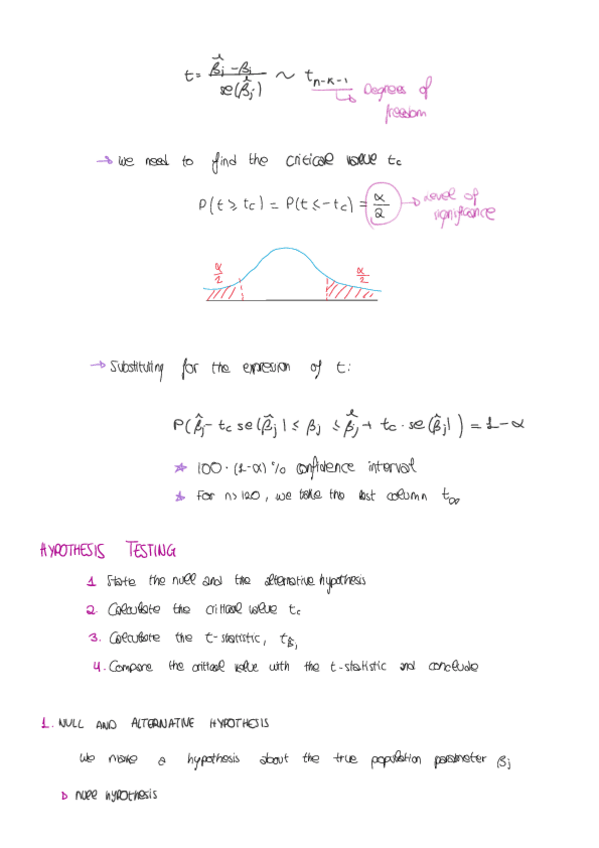 t = (β̂j − βj) / se(β̂j) ~ t n-k-1
↳ Degrees of freedom
→ we need to find the critical value tc
P(t ≥ tc) = P(t ≤ -tc) = α/2 → level of significance
α/2 α/2
→ Substituting for the expression of t:
P(β̂j - tc se(β̂j) ≤ βj ≤ β̂j + tc · se(β̂j)) = 1 - α
* 100 · (1-α) % confidence interval
* For n>120, we take the last column t∞
HYPOTHESIS TESTING
1. State the null and the alternative hypothesis
2. Calculate the critical value tc
3. Calculate the t-statistic, tβ̂j
4. Compare the critical value with the t-statistic and conclude
1. NULL AND ALTERNATIVE HYPOTHESIS
We make a hypothesis about the true population parameter βj
▷ null hypothesis